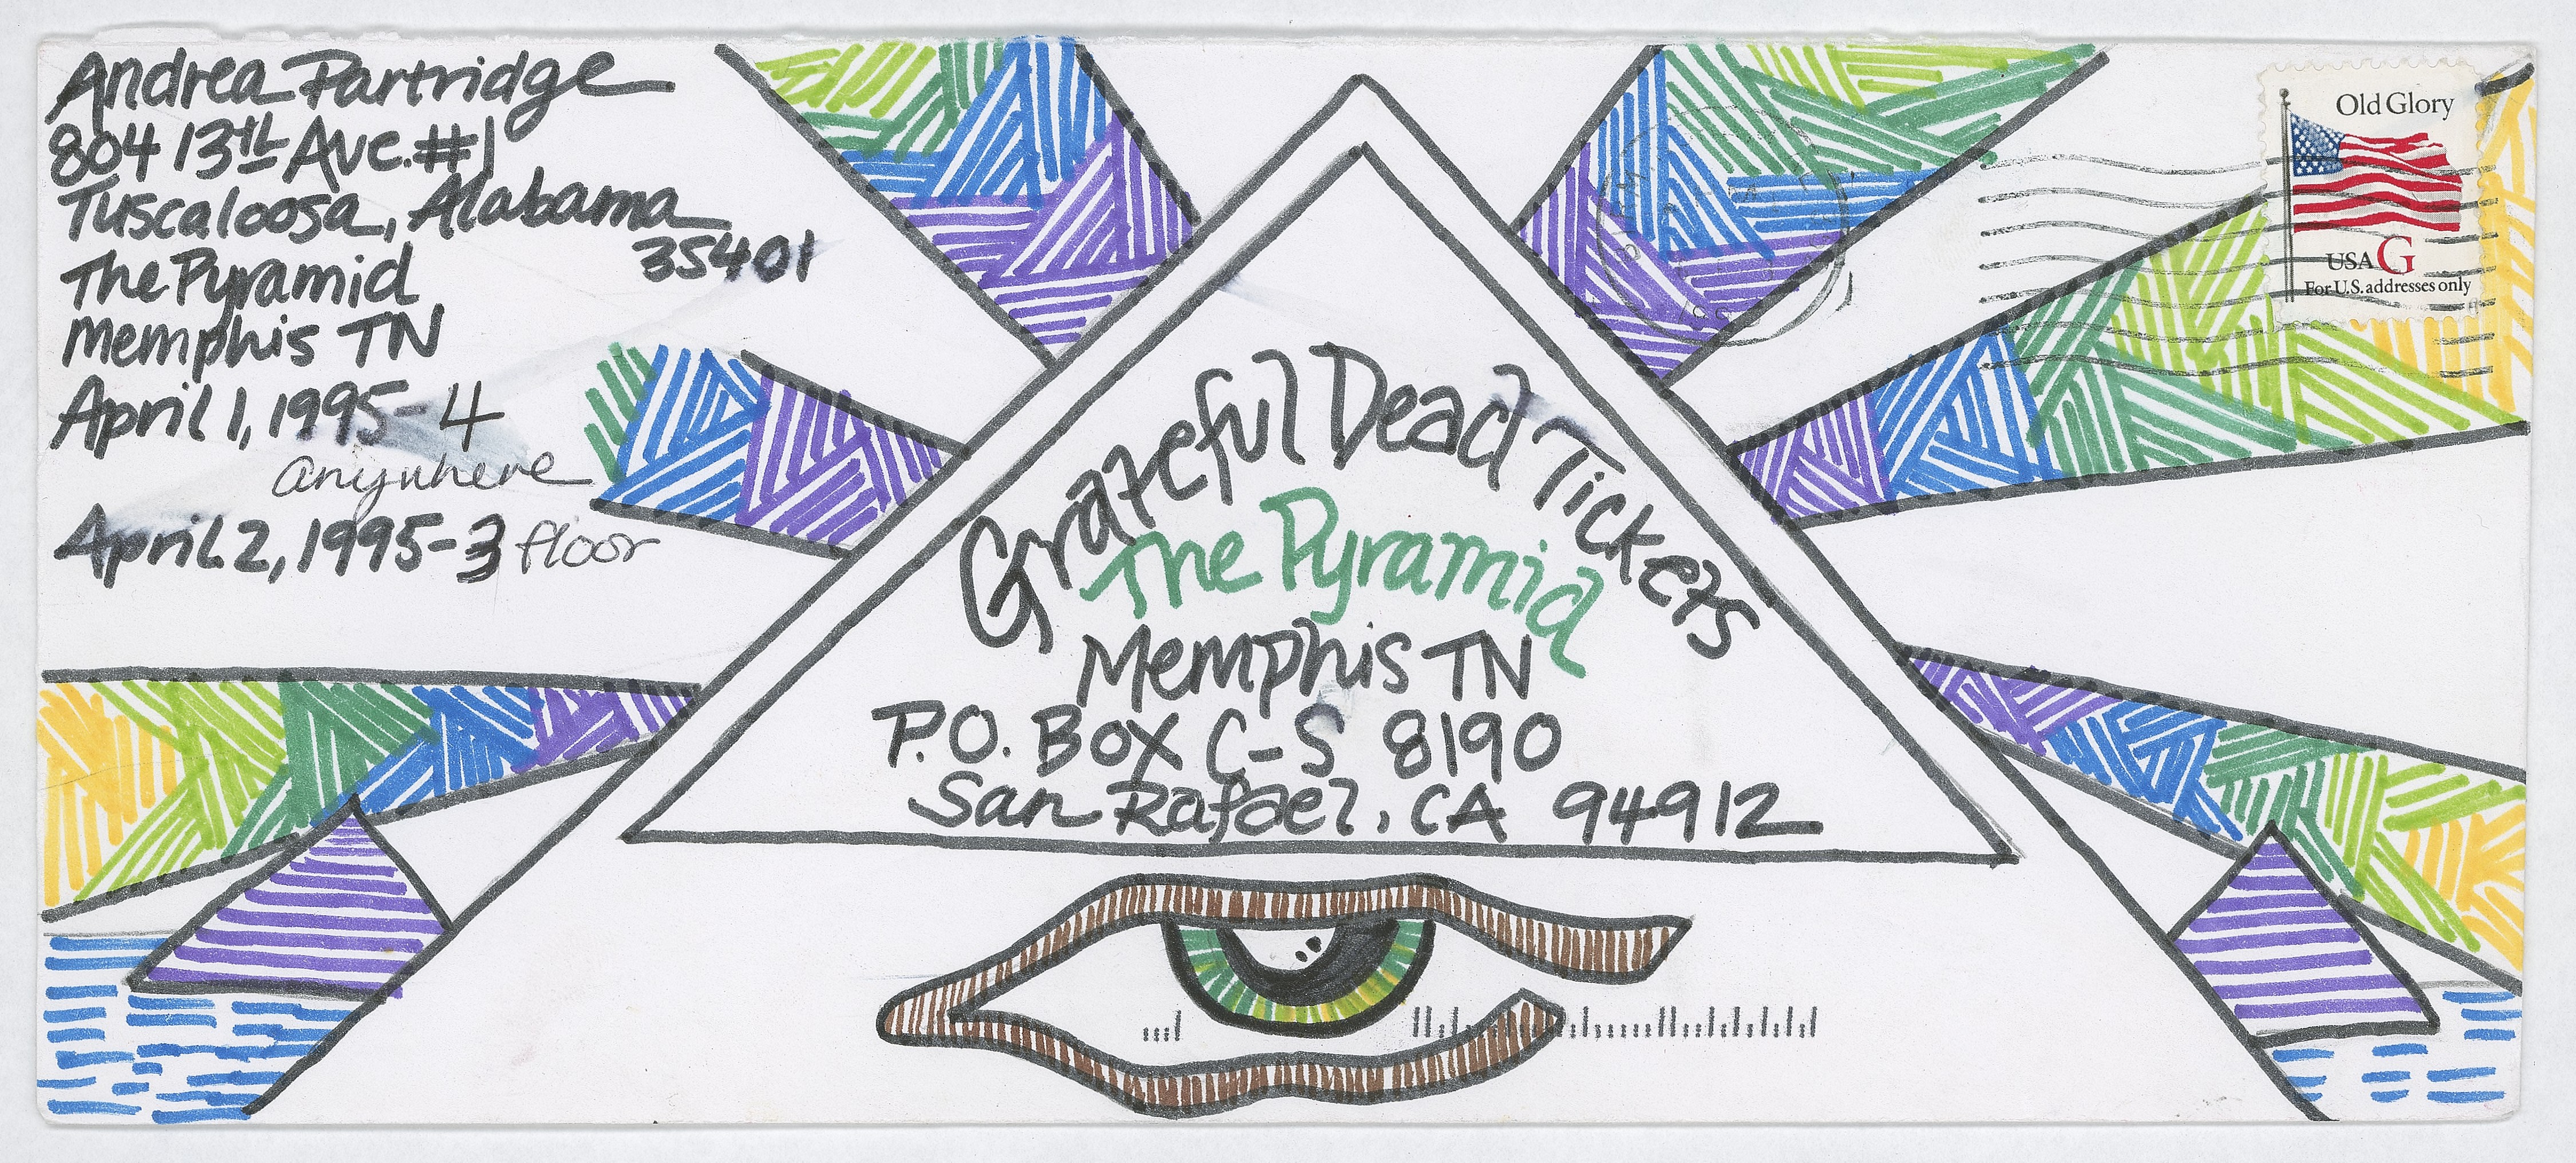 Andrea Partridge
804 13th Ave. #1
Tuscaloosa, Alabama
35401
The Pyramid
Memphis TN
April 1, 1995-4
anywhere
April 2, 1995-3 floor
Old Glory
USA G
For U.S. addresses only
Grateful Dead Tickets
The Pyramid
Memphis TN
P.O. Box C-S 8190
San Rafael, CA 94912